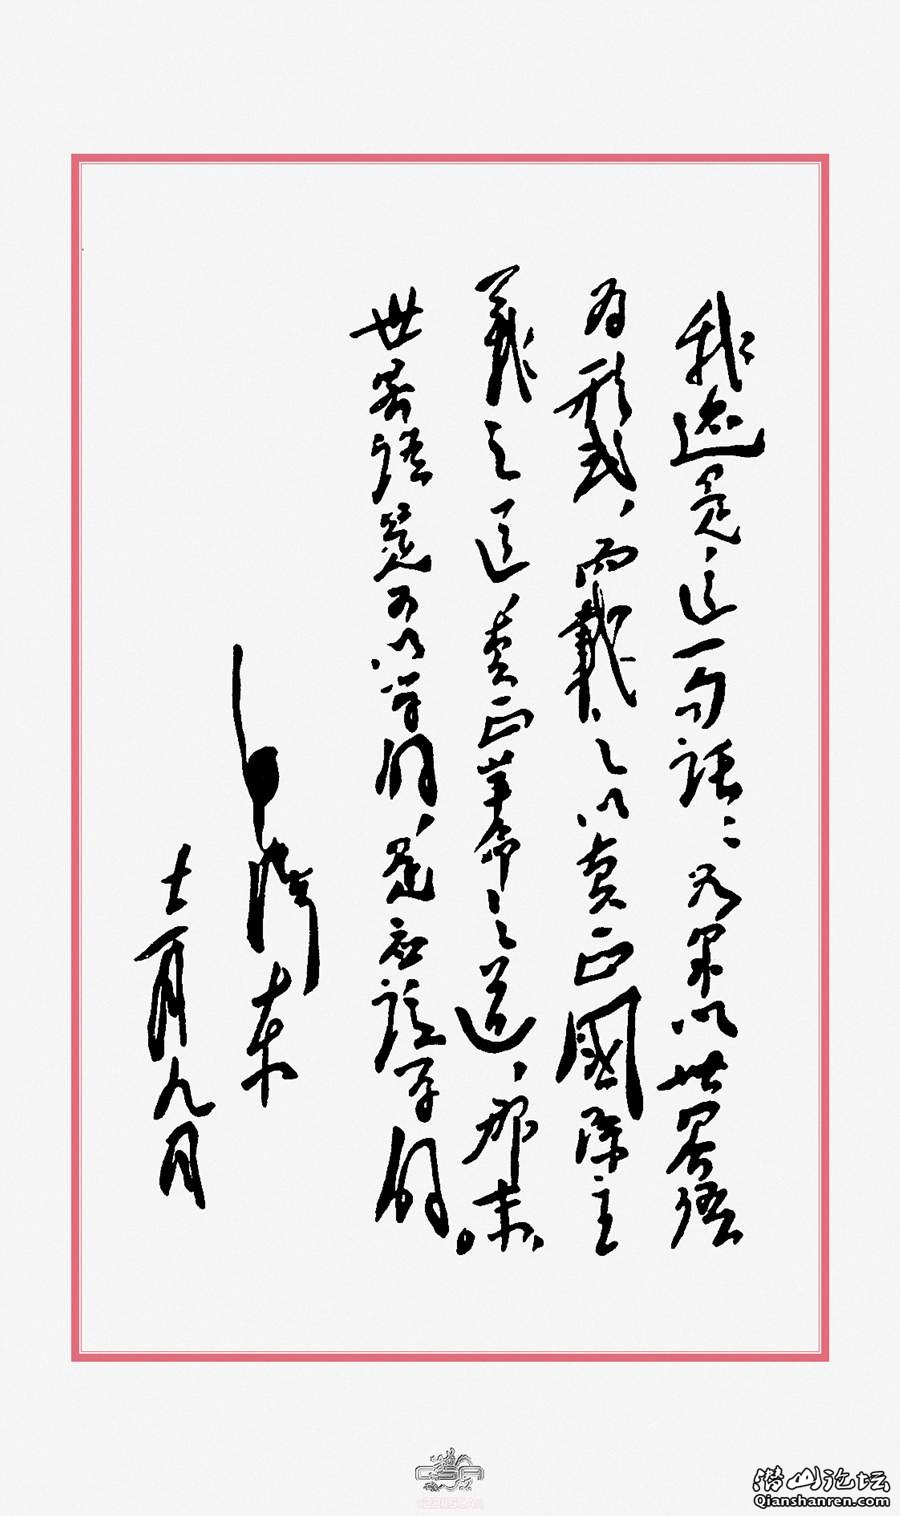 我還是這一句話：如果以世界語
为形式，而載之以真正國際主
義之道，真正革命之道，那末，
世界語是可以学的，是应該学的。
毛澤東
十二月九日
潜山论坛
Qianshanren.com